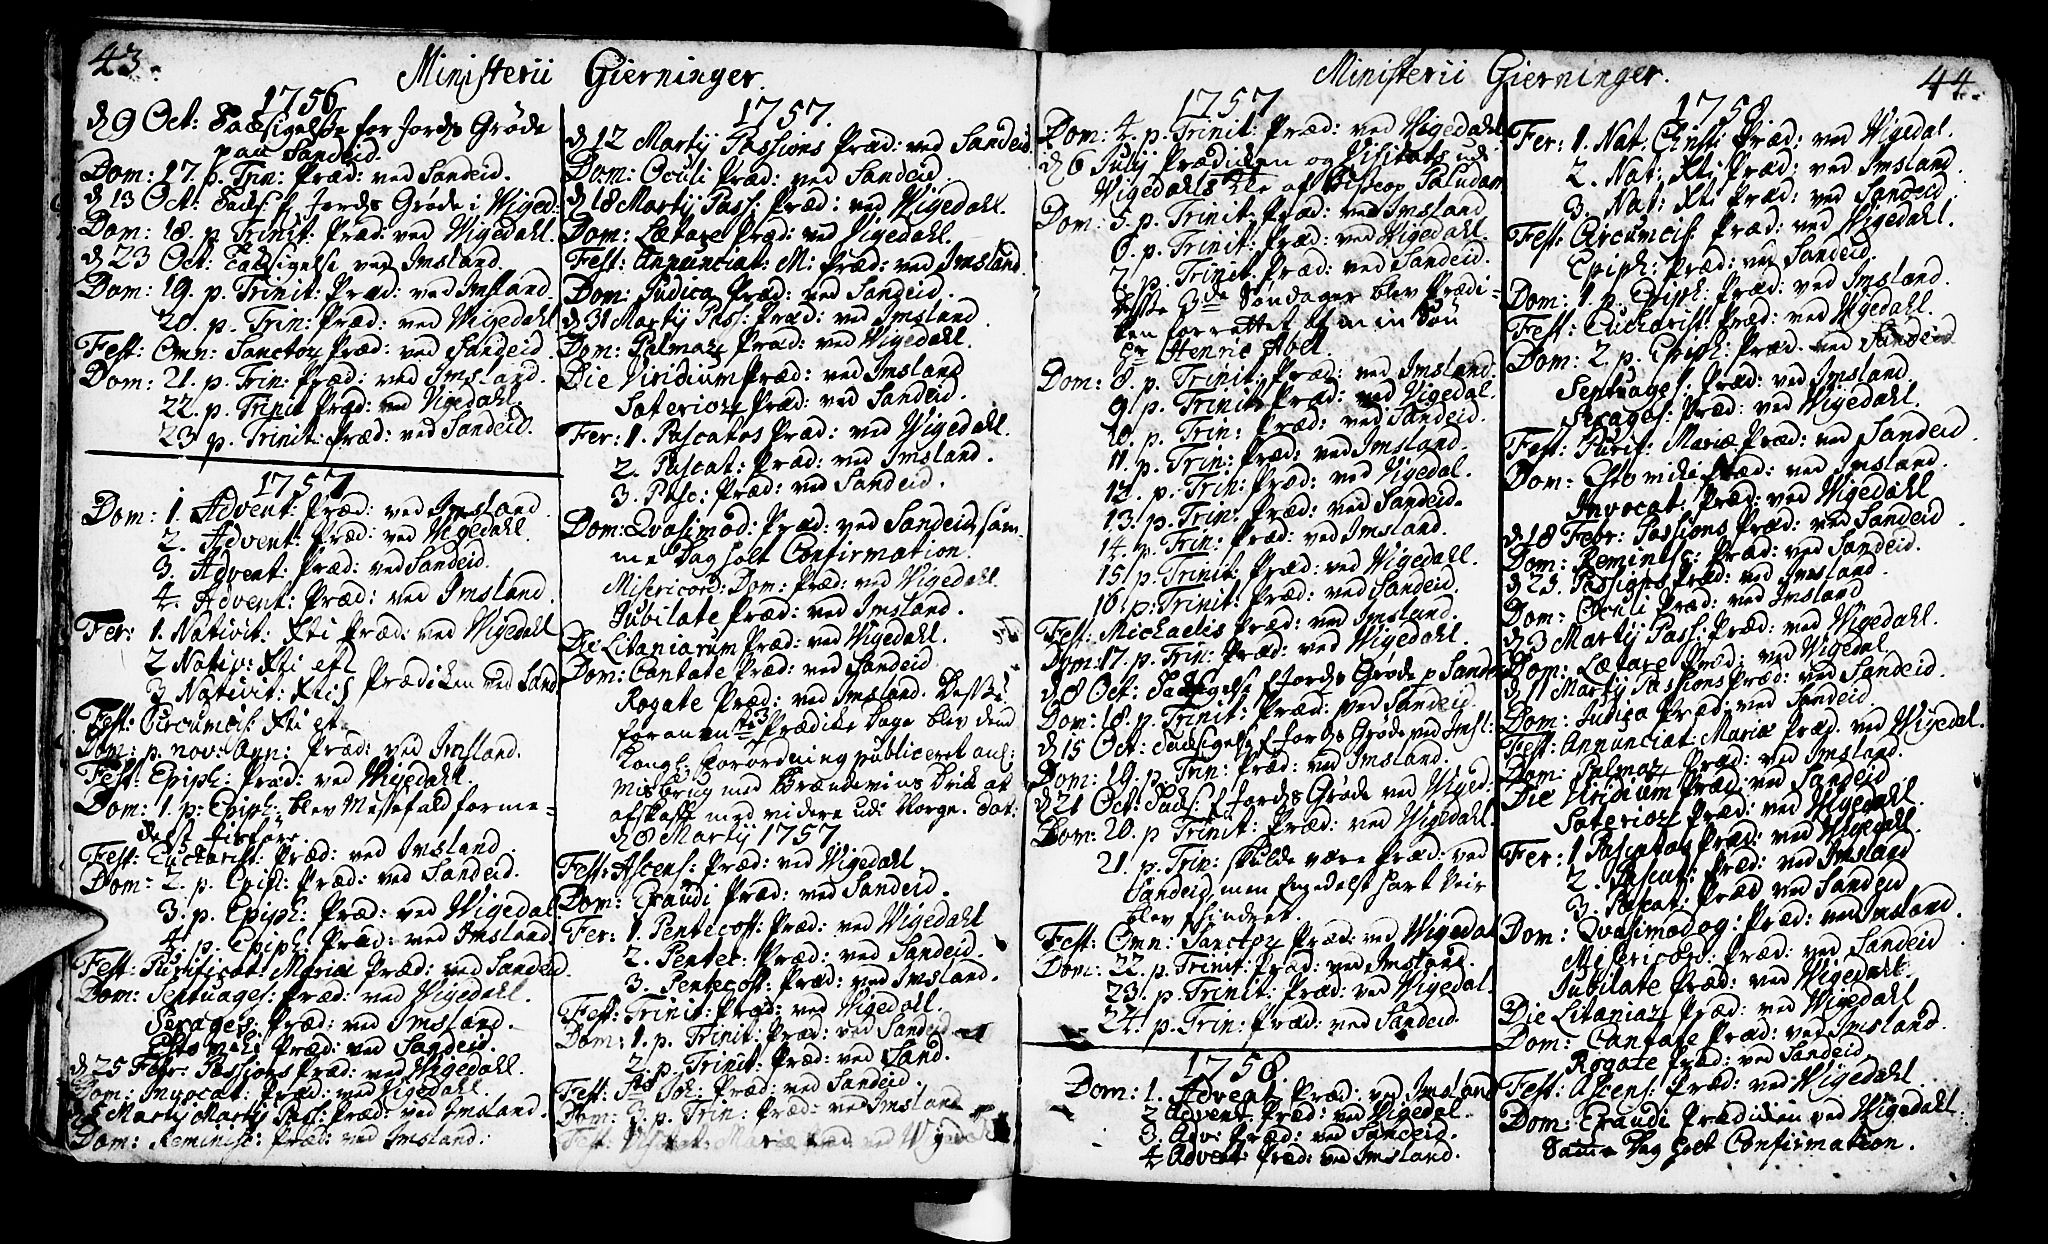 43.
Ministerii Gierninger.
1756
d 9 Oct: Tacksigelse for Jords Grøde
paa Sandeid.
Dom: 17. p. Trin: Præd: ved Sandeid.
d 13 Oct: Tacks: f Jords Grøde i Viged:
Dom: 18. p Trinit: Præd: ved Vigedahl.
d 23 Oct: Tacksigelse ved Imsland.
Dom: 19. p. Trinit: Præd: ved Imsland.
20. p. Trin: Præd: ved Vigedahl
Fest: Omn: Sanctor Præd: ved Sandeid.
Dom: 21. p. Trin: Præd: ved Imsland.
22. p. Trinit Præd: ved Vigedahl.
23 p. Trinit: Præd: ved Sandeid.
1757
Dom: 1. Advent: Præd: ved Imsland.
2. Advent: Præd: ved Vigedahl.
3. Advent: Præd: ved Sandeid.
4. Advent: Præd: ved Imsland.
Fer: 1. Nativit: Xti Præd: ved Vigedahl
2 Nativ: Xti et
3 Nativit: Xti Prædiken ved Sand
Fest: Circumcis: Xti et
Dom: p. nov: Ann: Præd: ved Imsland.
Fest: Epiph: Præd: ved Vigedahl.
Dom: 1. p: Epiph: blev Messefald forme-
delst
Fest: Eucharist: Præd: ved Imsland.
Dom: 2. p. Epiph: Præd: ved Sandeid.
3. p. Epiph: Præd: ved Vigedal
4. p. Epiph: Præd: ved Imsland
Fest: Purificat: Mariæ Præd: ved Sandeid.
Dom: Septuages: Præd: ved Vigedahl.
Sexages: Præd: ved Imsland.
Esto mihi Præd: ved Sandeid.
d 25 Febr: Passions Præd: ved Vigedahl.
Dom: Invocat: Præd: ved Vigedahl.
Martij Martij Pass: Præd: ved Imsland.
Dom: Reminisc: Præd: ved Imsland:
1757.
d 12 Martij Passions Præd: ved Sandeid.
Dom: Oculi Præd: ved Sandeid.
d 18 Martij Pass: Præd: ved Vigedahl.
Dom: Lætare Præd: ved Vigedahl.
Fest: Annunciat: M: Præd: ved Imsland.
Dom: Judica Præd: ved Sandeid.
d 31 Martij Pass: Præd: ved Imsland
Dom: Palmar Præd: ved Vigedahl.
Die Viridium Præd: ved Imsland
Soterior Præd: ved Sandeid.
Fer: 1. Pascatos Præd: ved Vigedahl.
2. Pascat: Præd: ved Imsland.
3. Pasc: Præd: ved Sandeid.
Dom: Qvasimod: Præd: ved Sandeid, sam-
me Dag holt Confirmation.
Misericord: Dom: Præd: ved Vigedahl.
Jubilate Præd: ved Imsland.
Die Litaniarum Præd: ved Vigedahl.
Dom: Cantate Præd: ved Sandeid
Rogate Præd: ved Imsland. Desse
foranante 3 Prædike Dage blev dend
Kongl: Forordning publiceret ang:
Misbrug med Brændeviins Drik at
afskaffe med videre udi Norge. Dat:
d 28 Martij 1757.
Fest: Ascens: Præd: ved Vigedahl
Dom: Exaudi Præd: ved Sandeid.
Fer: 1. Pentecost: Præd: ved Vigedahl
2. Pentec: Præd: ved Sandeid.
3. Pentecost: Præd: ved Imsland.
Fest: Trinit: Præd: ved Vigedahl.
Dom: 1. p. Trinit: Præd: ved Sandeid
2. p. Trinit: Præd: ved Sand.
Fest: Sti Joh: Præd: ved Sandeid.
Dom: 3. p. Trin: Præd: ved Imsland
Fest: Visitat: Mariæ Præd: ved
Ministerii Gierninger.
44.
1757
Dom: 4. p. Trinit: Præd: ved Vigedahl
d 6 July Prædiken og Visitats udi
Vigedahls Kke af Biscop Paludan.
Dom: 5. p. Trinit: Præd: ved Imsland
6. p. Trinit: Præd: ved Vigedahl.
7. p. Trinit. Præd: ved Sandeid.
Desse 3de Søndager blev Prædi-
ken forrettet af min Søn
Hr Henric Abel.
Dom: 8. p. Trinit: Præd: ved Imsland.
9 p. Trinit: Præd: ved Vigedal.
10. p. Trin: Præd: ved Sandeid.
11. p. Trin: Præd: ved Imsland
12. p. Trin: Præd: ved Vigedal.
13. p. Trin: Præd: ved Sandeid.
14. p. Trin: Præd: ved Imsland.
15 p. Trinit: Præd: ved Vigedahl.
16 p: Trinit: Præd: ved Sandeid.
Fest: Michaelis Præd: ved Imsland.
Dom: 17. p. Trin: Præd: ved Vigedahl.
d 8 Oct: Tacksigelse f Jords Grøde p Sand
Dom: 18. p. Trinit: Præd: ved Sandeid.
d 15 Oct: Tacksigelse f Jords Grøde ved Imsl:
Dom: 19. p. Trin: Præd: ved Imsland.
d 21 Oct: Tacks: f Jords Grøde ved Viged:
Dom: 20. p Trinit: Præd: ved Vigedahl.
21. p. Trin: skulde være Præd: ved
Sandeid, men formedelst hart Veir
blev hindret.
Fest: Omn: Sanctor Præd: ved Vigedal
Dom: 22. p. Trinit: Præd: ved Imsland.
23. p. Trinit: Præd: ved Vigedal.
24. p. Trin: Præd: ved Sandeid.
1758.
Dom: 1. Advent. Præd: ved Imsland
2. Advent. Præd: ved Vigedal.
3. Adv: Præd: ved Sandeid.
4 Advent: Præd: ved Imsland.
1758
Fer: 1. Nat. Christi Præd: ved Vigedal.
2. Nat: Xti Præd: ved Imsland
3. Nat: Xti Præd: ved Sandeid
Fest: Circumcis: Præd: ved Vigedahl.
Epiph: Præd: ved Sandeid.
Dom: 1. p. Epiph: Præd: ved Imsland.
Fest: Eucharist: Præd: ved Vigedahl.
Dom: 2 p. Epiph: Præd: ved Sandeid
Septuages: Præd: ved Imsland
Sexages: Præd: ved Vigedahl.
Fest: Purif: Mariæ Præd: ved Sandeid.
Dom: Esto mihi Præd: ved Imsland.
Invocat: Præd: ved Vigedahl
d 18 Febr: Passions Præd: ved Sandeid
Dom: Reminisc: Præd: ved Sandeid.
d 23. Passions Præd: ved Imsland.
Dom: Oculi Præd: ved Imsland
d 3 Martij Pass: Præd: ved Vigedahl.
Dom: Lætare Præd: ved Vigedal
d 11 Martij Passions Præd: ved Sandeid.
Dom: Judica Præd: ved Sandeid.
Fest: Annunciat: Mariæ Præd. ved Vigedal.
Dom: Palmar Præd: ved Imsland.
Die Viridium Præd: ved Sandeid
Soterior Præd: ved Vigedahl.
Fer: 1 Pascatos Præd: ved Vigedahl.
2. Pascat: Præd: ved Imsland
3. Pascat: Præd ved Sandeid
Dom: Qvasimodog: Præd: ved Imsland.
Misericord: Præd: ved Sandeid
Jubilate Præd: ved Vigedahl.
Die Litaniar Præd: ved Vigedahl
Dom: Cantate Præd: ved Imsland.
Rogate Præd: ved Sandeid
Fest: Ascens: Præd: ved Vigedahl.
Dom: Exaudi Prædiken ved Vigedahl.
Samme Dag holt Confirmation.